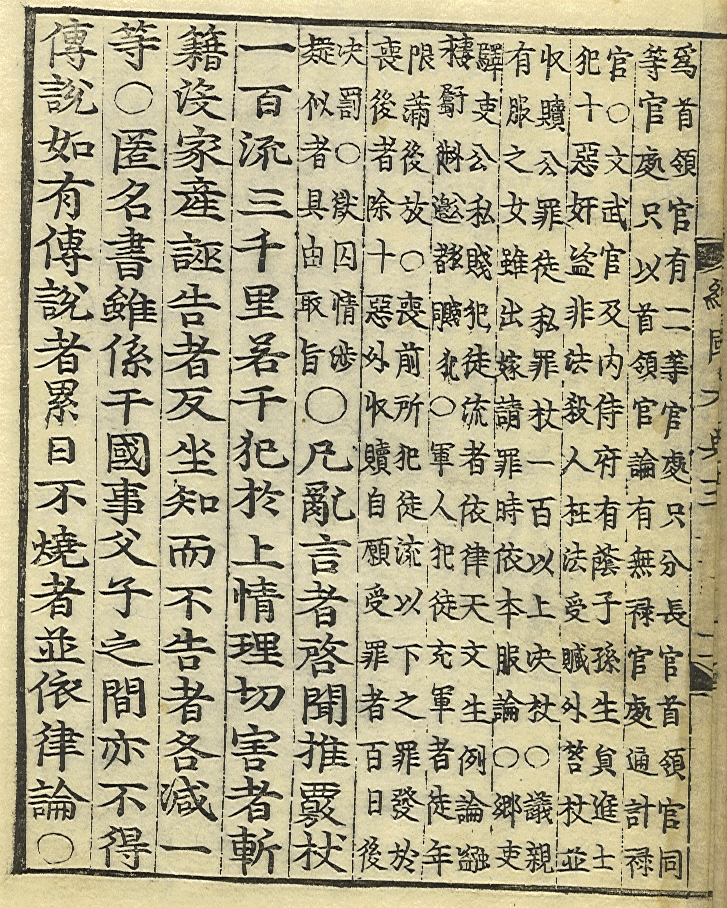 爲首領官有二等官處只分長官首領官同
等官處只以首領官論有無祿官處通計祿
官○文武官及內侍府有蔭子孫生員進士
犯十惡奸盜非法殺人枉法受贓外笞杖並
収贖公罪徒私罪杖一百以上决杖○議親
有服之女雖出嫁請罪時依本服論○鄉吏
驛吏公私賤犯徒流者依律天文生例論
犯○軍人犯徒充軍者徒年
限滿後放○喪前所犯徒流以下之罪發於
喪後者除十惡外収贖自願受罪者百日後
决罰○獄囚情涉
疑似者具由取旨
○凡亂言者啓聞推覈杖
一百流三千里若干犯於上情理切害者斬
籍沒家産誣告者反坐知而不告者各減一
等○匿名書雖係干國事父子之間亦不得
傳說如有傳說者累日不燒者並依律論○